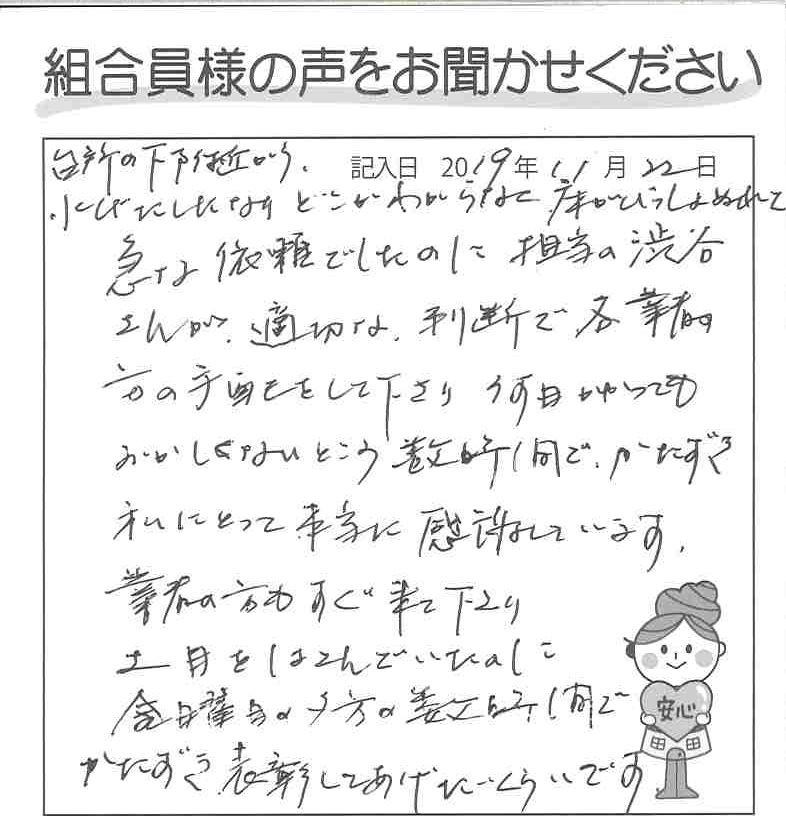 組合員様の声をお聞かせください
記入日 2019年11月22日
台所の下附近から、
水びたしになり どこかわからなくて 床がびっしょぬれて
急な依頼でしたのに 担当の渋谷
さんが、適切な、判断で、各業者の
方の手配をして下さり 数日かかっても
おかしくないところ 数時間で、かたずき
私にとって 本当に 感謝しています。
業者の方も すぐ 来て下さり
土日をはさんでいたのに
金曜日の夕方の数時間で
かたずき 表彰してあげたいくらいです
安心